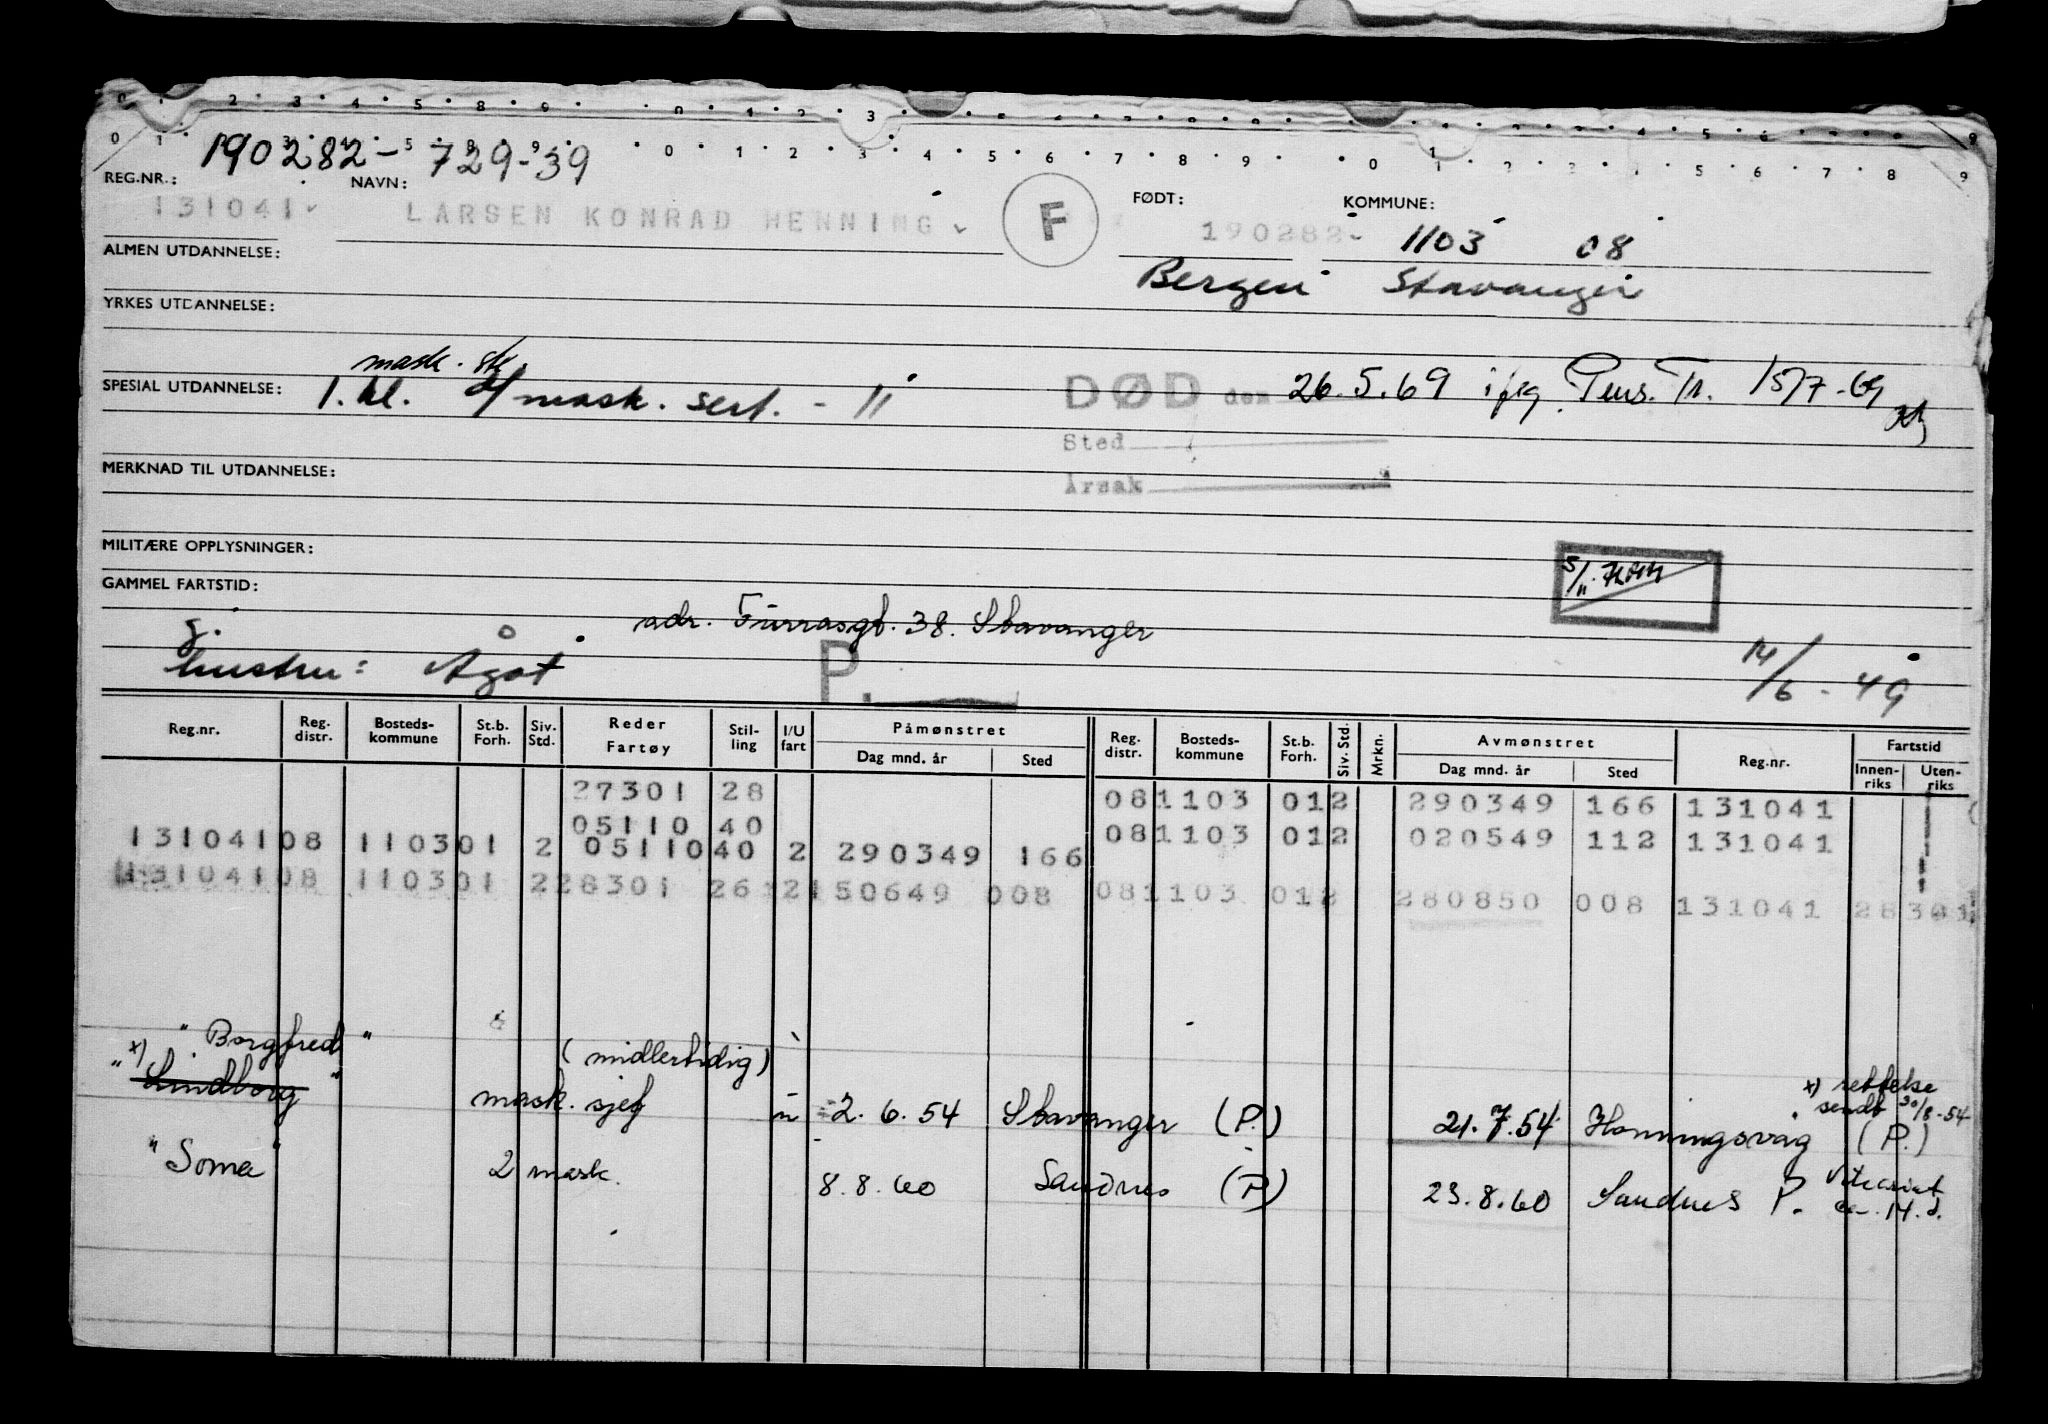 190282-72939
REG.NR.: NAVN: FØDT: KOMMUNE:
131041 LARSEN KONRAD HENNING F 190282 1103 08
ALMEN UTDANNELSE: Bergen Stavanger
YRKES UTDANNELSE:
mask. sk.
SPESIAL UTDANNELSE: 1. kl. mask. sert. - 11 DØD den 26.5.69 Pens. Tr. 15/7-69
Sted
Årsak
MERKNAD TIL UTDANNELSE:
MILITÆRE OPPLYSNINGER:
5/11
GAMMEL FARTSTID:
g. adr. Furrasgt. 38. Stavanger
hustru: Ågot P. 14/6 - 49
Reg.nr. Reg. distr. Bosteds- kommune St.b. Forh. Siv. Std. Reder Fartøy Stil- ling I/U fart Påmønstret Dag mnd. år Sted Reg. distr. Bosteds- kommune St.b. Forh. Siv. Std. Mrkn. Avmønstret Dag mnd. år Sted Reg.nr. Fartstid Innen- riks Uten- riks
27301 28 081103 012 290349 166 131041
05110 40 081103 012 020549 112 131041
13104108 110301 2 0511040 2 290349 166
13104108 110301 228301 26 2150649 008 081103 012 280850 008 131041 28301
" Borgfred " (midlertidig)
x) "Lindborg" mask. sjef u 2.6.54 Stavanger (P.) 21.7.54 Honningsvåg (P.) x) rettelse sendt 30/8-54
"Soma" 2 mask. 8.8.60 Sandnes (P) 23.8.60 Sandnes P. Vikariat 14. d.